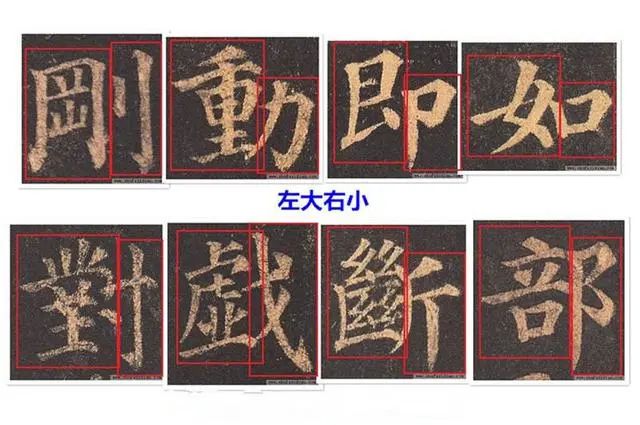 剛動即如
左大右小
對戯斷部